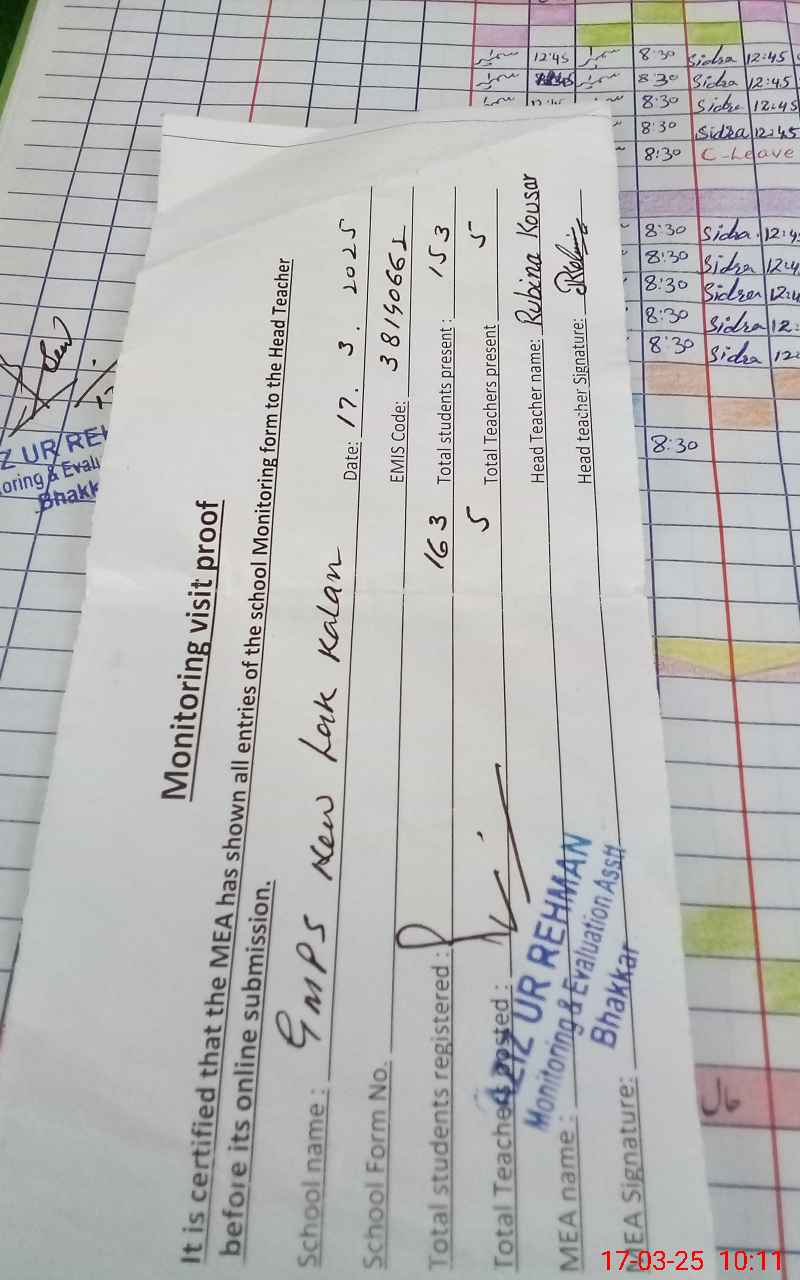 Monitoring visit proof
It is certified that the MEA has shown all entries of the school Monitoring form to the Head Teacher
before its online submission.
School name: GMPS New Lak Kalan Date: 17. 3. 2025
School Form No. EMIS Code: 38190661
Total students registered: 163 Total students present: 153
Total Teachers posted: 5 Total Teachers present 5
MEA name: Head Teacher name: Rubina Kousar
MEA Signature: Head teacher Signature:
AZIZ UR REHMAN
Monitoring & Evaluation Asstt
Bhakkar
12:45 8:30 Sidra 12:45
8:30 Sidra 12:45
8:30 Sidra 12:45
8:30 Sidra 12:45
8:30 C-Leave
8:30 Sidra 12:4
8:30 Sidra 12:4
8:30 Sidra 12:4
8:30 Sidra 12:
8:30 Sidra 12:
8:30
Z UR REH
oring & Evalu
Bhakk
17-03-25 10:11